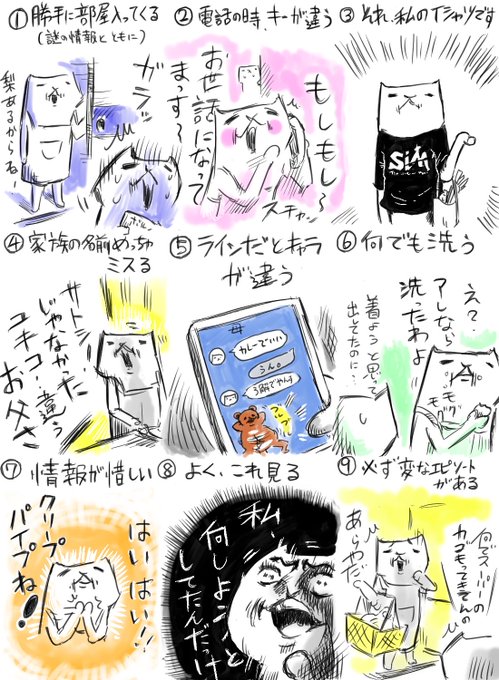 ①勝手に部屋入ってくる
(謎の情報とともに)
ガラッ
梨あるからねー
②電話の時、キーが違う
もしもし〜
お世話になって
まっす〜
スチャッ
③それ、私のTシャツです
SiM
④家族の名前めっちゃ
ミスる
サトシ
じゃなかった
ユキコ!違う
お父さ
⑤ラインだとキャラ
が違う
カレーでいい
うん。
3解でやんす
⑥何でも洗う
え?
アレなら
洗ったわよ
着ようと思って
出してたのに…
モグ
モグ
⑦情報が惜しい
はいはい!!
クリープ
パイプね!
⑧よく、これ見る
私、
何しよン、と
してたんだっけ
⑨必ず変なエピソード
がある
何でスーパーの
カゴもってきてんの
あらやだ